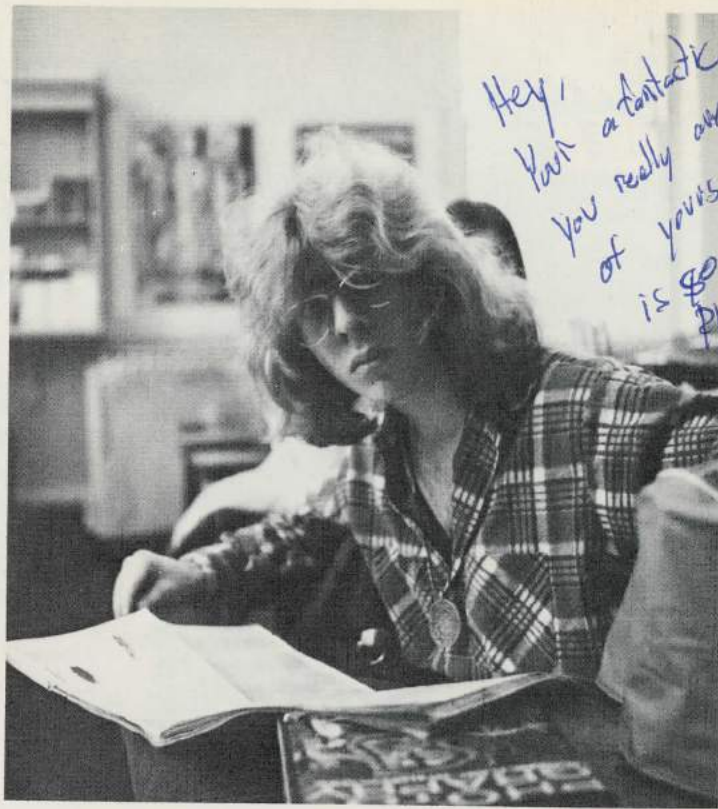 Hey,
Your a fantastic
you really
of yours
is so